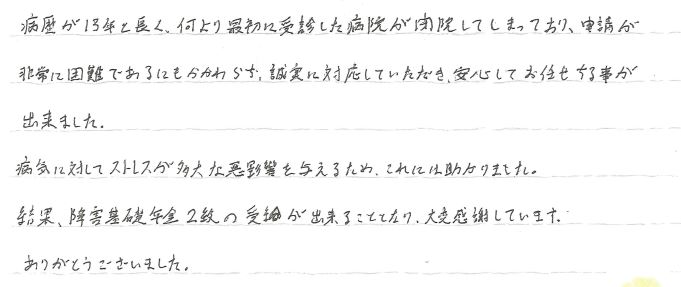 病歴が13年と長く、何より最初に受診した病院が閉院してしまっており、申請が
非常に困難であるにもかかわらず、誠実に対応していただき、安心してお任せする事が
出来ました。
病気に対してストレスが多大な悪影響を与えるため、これには助かりました。
結果、障害基礎年金2級の受給が出来ることとなり、大変感謝しています。
ありがとうございました。